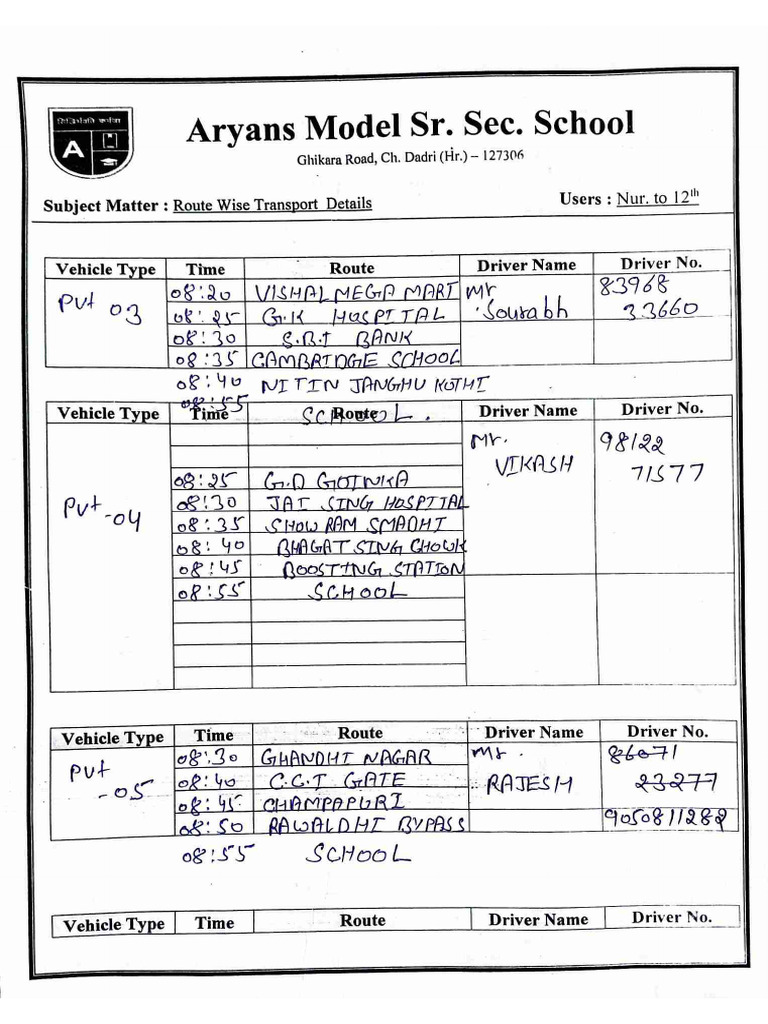 Aryans Model Sr. Sec. School
A
Ghikara Road, Ch. Dadri (Hr.) – 127306
Subject Matter : Route Wise Transport Details Users : Nur. to 12th
Vehicle Type Time Route Driver Name Driver No.
Pvt 03 08:20 VISHAL MEGA MART Mr 83968
08:25 G.K HOSPITAL Sourabh 33660
08:30 S.B.I BANK
08:35 CAMBRIDGE SCHOOL
08:40 NITIN JANGHU KOTHI
08:55 SCHOOL.
Vehicle Type Time Route Driver Name Driver No.
Mr. 98122
VIKASH 71577
08:25 G.D GOINKA
Pvt -04 08:30 JAI SING HOSPITAL
08:35 SHOW RAM SMADHI
08:40 BHAGAT SING CHOWK
08:45 BOOSTING STATION
08:55 SCHOOL
Vehicle Type Time Route Driver Name Driver No.
Pvt 08:30 GHANDHI NAGAR Mr. 86071
-05 08:40 C.C.I GATE RAJESH 23277
08:45 CHAMPAPURI
08:50 RAWALDHI BYPASS 9050811282
08:55 SCHOOL
Vehicle Type Time Route Driver Name Driver No.